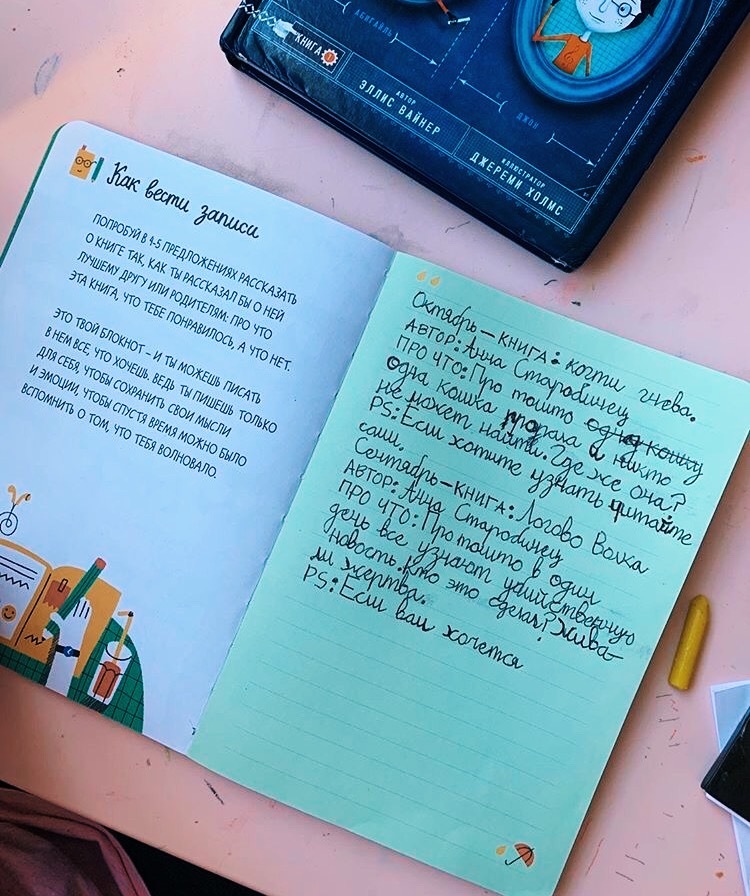 АБИГАЙЛЬ
КНИГА 1
АВТОР
ЭЛЛИС ВАЙНЕР
ДЖОН
ИЛЛЮСТРАТОР
ДЖЕРЕМИ ХОЛМС
Как вести записи
ПОПРОБУЙ В 4-5 ПРЕДЛОЖЕНИЯХ РАССКАЗАТЬ
О КНИГЕ ТАК, КАК ТЫ РАССКАЗАЛ БЫ О НЕЙ
ЛУЧШЕМУ ДРУГУ ИЛИ РОДИТЕЛЯМ: ПРО ЧТО
ЭТА КНИГА, ЧТО ТЕБЕ ПОНРАВИЛОСЬ, А ЧТО НЕТ.
ЭТО ТВОЙ БЛОКНОТ – И ТЫ МОЖЕШЬ ПИСАТЬ
В НЕМ ВСЕ, ЧТО ХОЧЕШЬ. ВЕДЬ ТЫ ПИШЕШЬ ТОЛЬКО
ДЛЯ СЕБЯ, ЧТОБЫ СОХРАНИТЬ СВОИ МЫСЛИ
И ЭМОЦИИ, ЧТОБЫ СПУСТЯ ВРЕМЯ МОЖНО БЫЛО
ВСПОМНИТЬ О ТОМ, ЧТО ТЕБЯ ВОЛНОВАЛО.
Октябрь – КНИГА: когти гнева.
АВТОР: Анна Старобинец
ПРО ЧТО: Про тошто одна кошку
одна кошка пропала и никто
не может найти. Где же она?
PS: Если хотите узнать читайте
сами.
Сентябрь – КНИГА: Логово Волка
АВТОР: Анна Старобинец
ПРО ЧТО: Про тошто в один
день все узнают убийственную
новость. Кто это сделал? Жива-
ли жертва.
PS: Если вам хочется